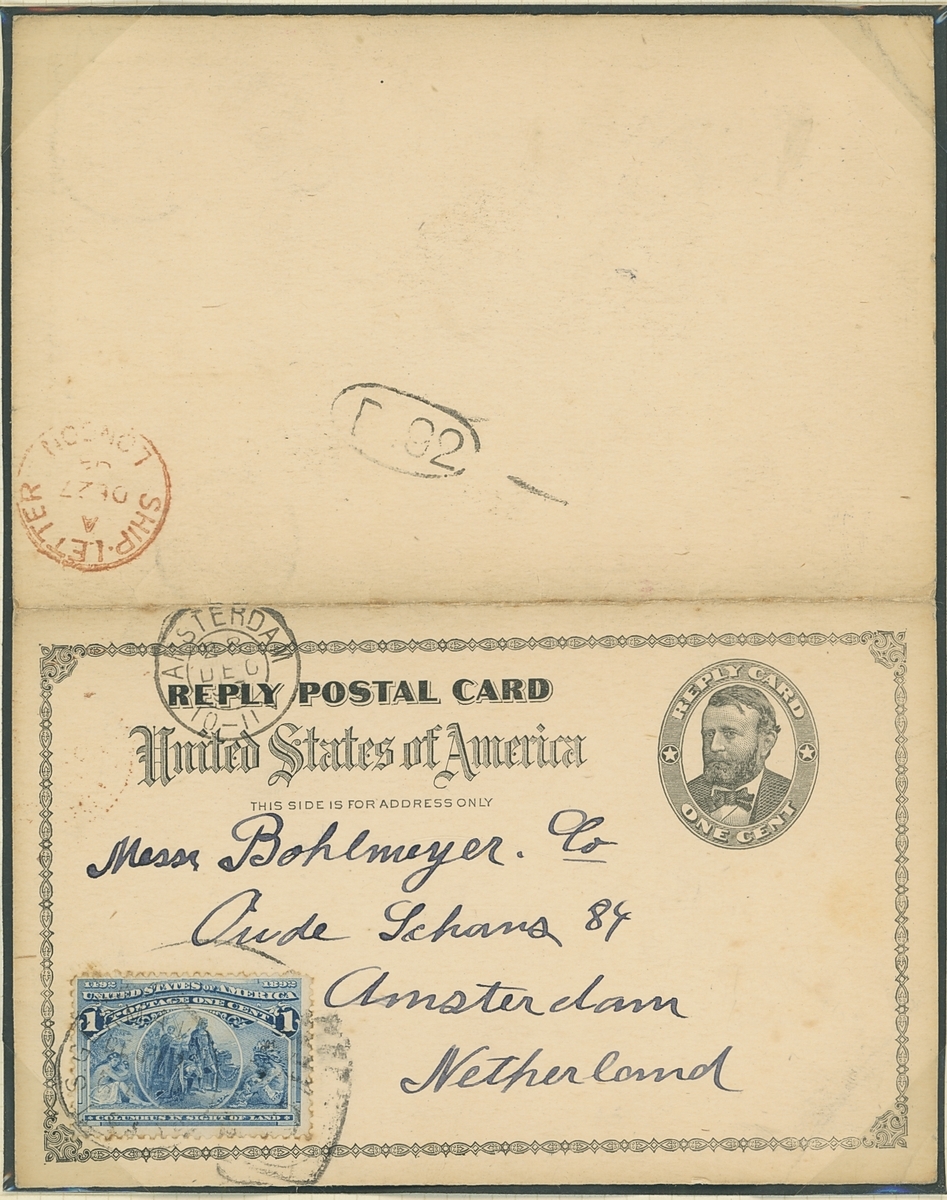 LONDON
OC 27
A
SHIP-LETTER
92
AMSTERDAM
DEC
10-11
REPLY POSTAL CARD
United States of America
THIS SIDE IS FOR ADDRESS ONLY
REPLY CARD
ONE CENT
Messrs Bohlmeyer. Co
Oude Schans 84
Amsterdam
Netherland
1492 1892
UNITED STATES OF AMERICA
POSTAGE ONE CENT
1 1
COLUMBUS IN SIGHT OF LAND